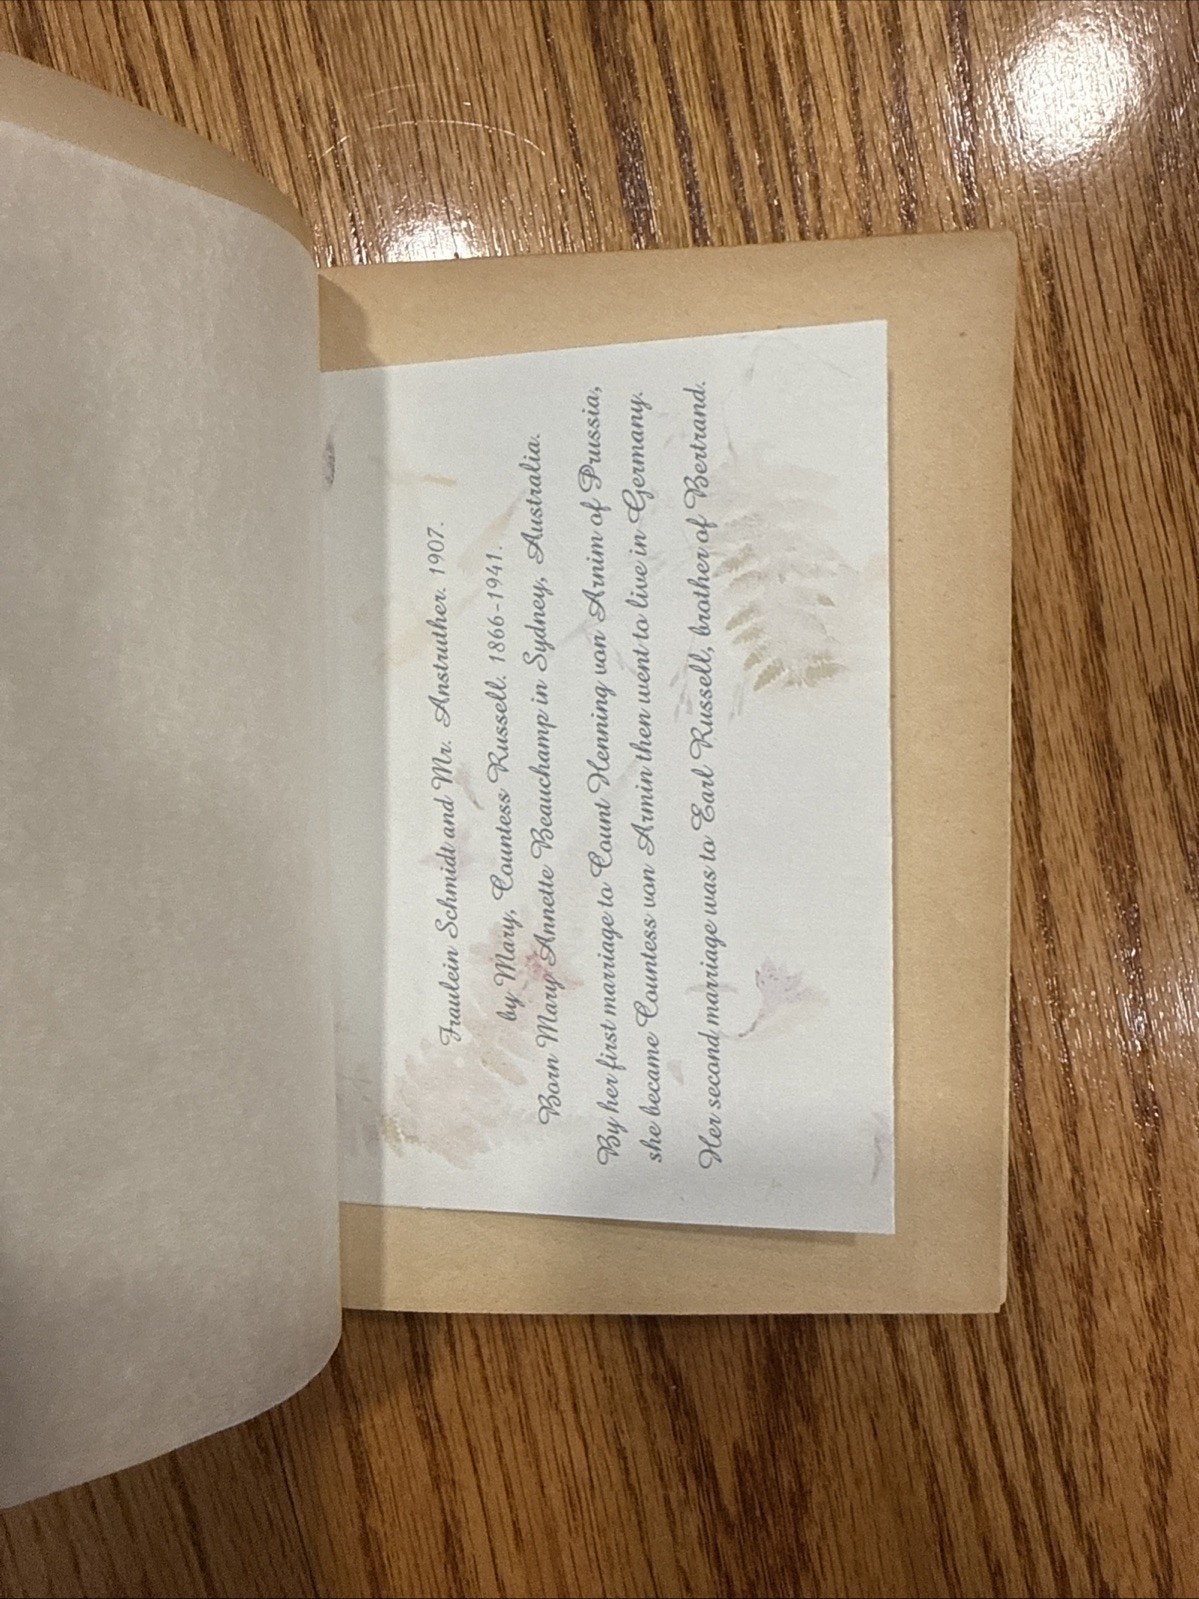 Fraulein Schmidt and Mr. Anstruther. 1907.
by Mary, Countess Russell. 1866-1941.
Born Mary Annette Beauchamp in Sydney, Australia.
By her first marriage to Count Henning von Arnim of Prussia,
she became Countess von Armin then went to live in Germany.
Her second marriage was to Earl Russell, brother of Bertrand.